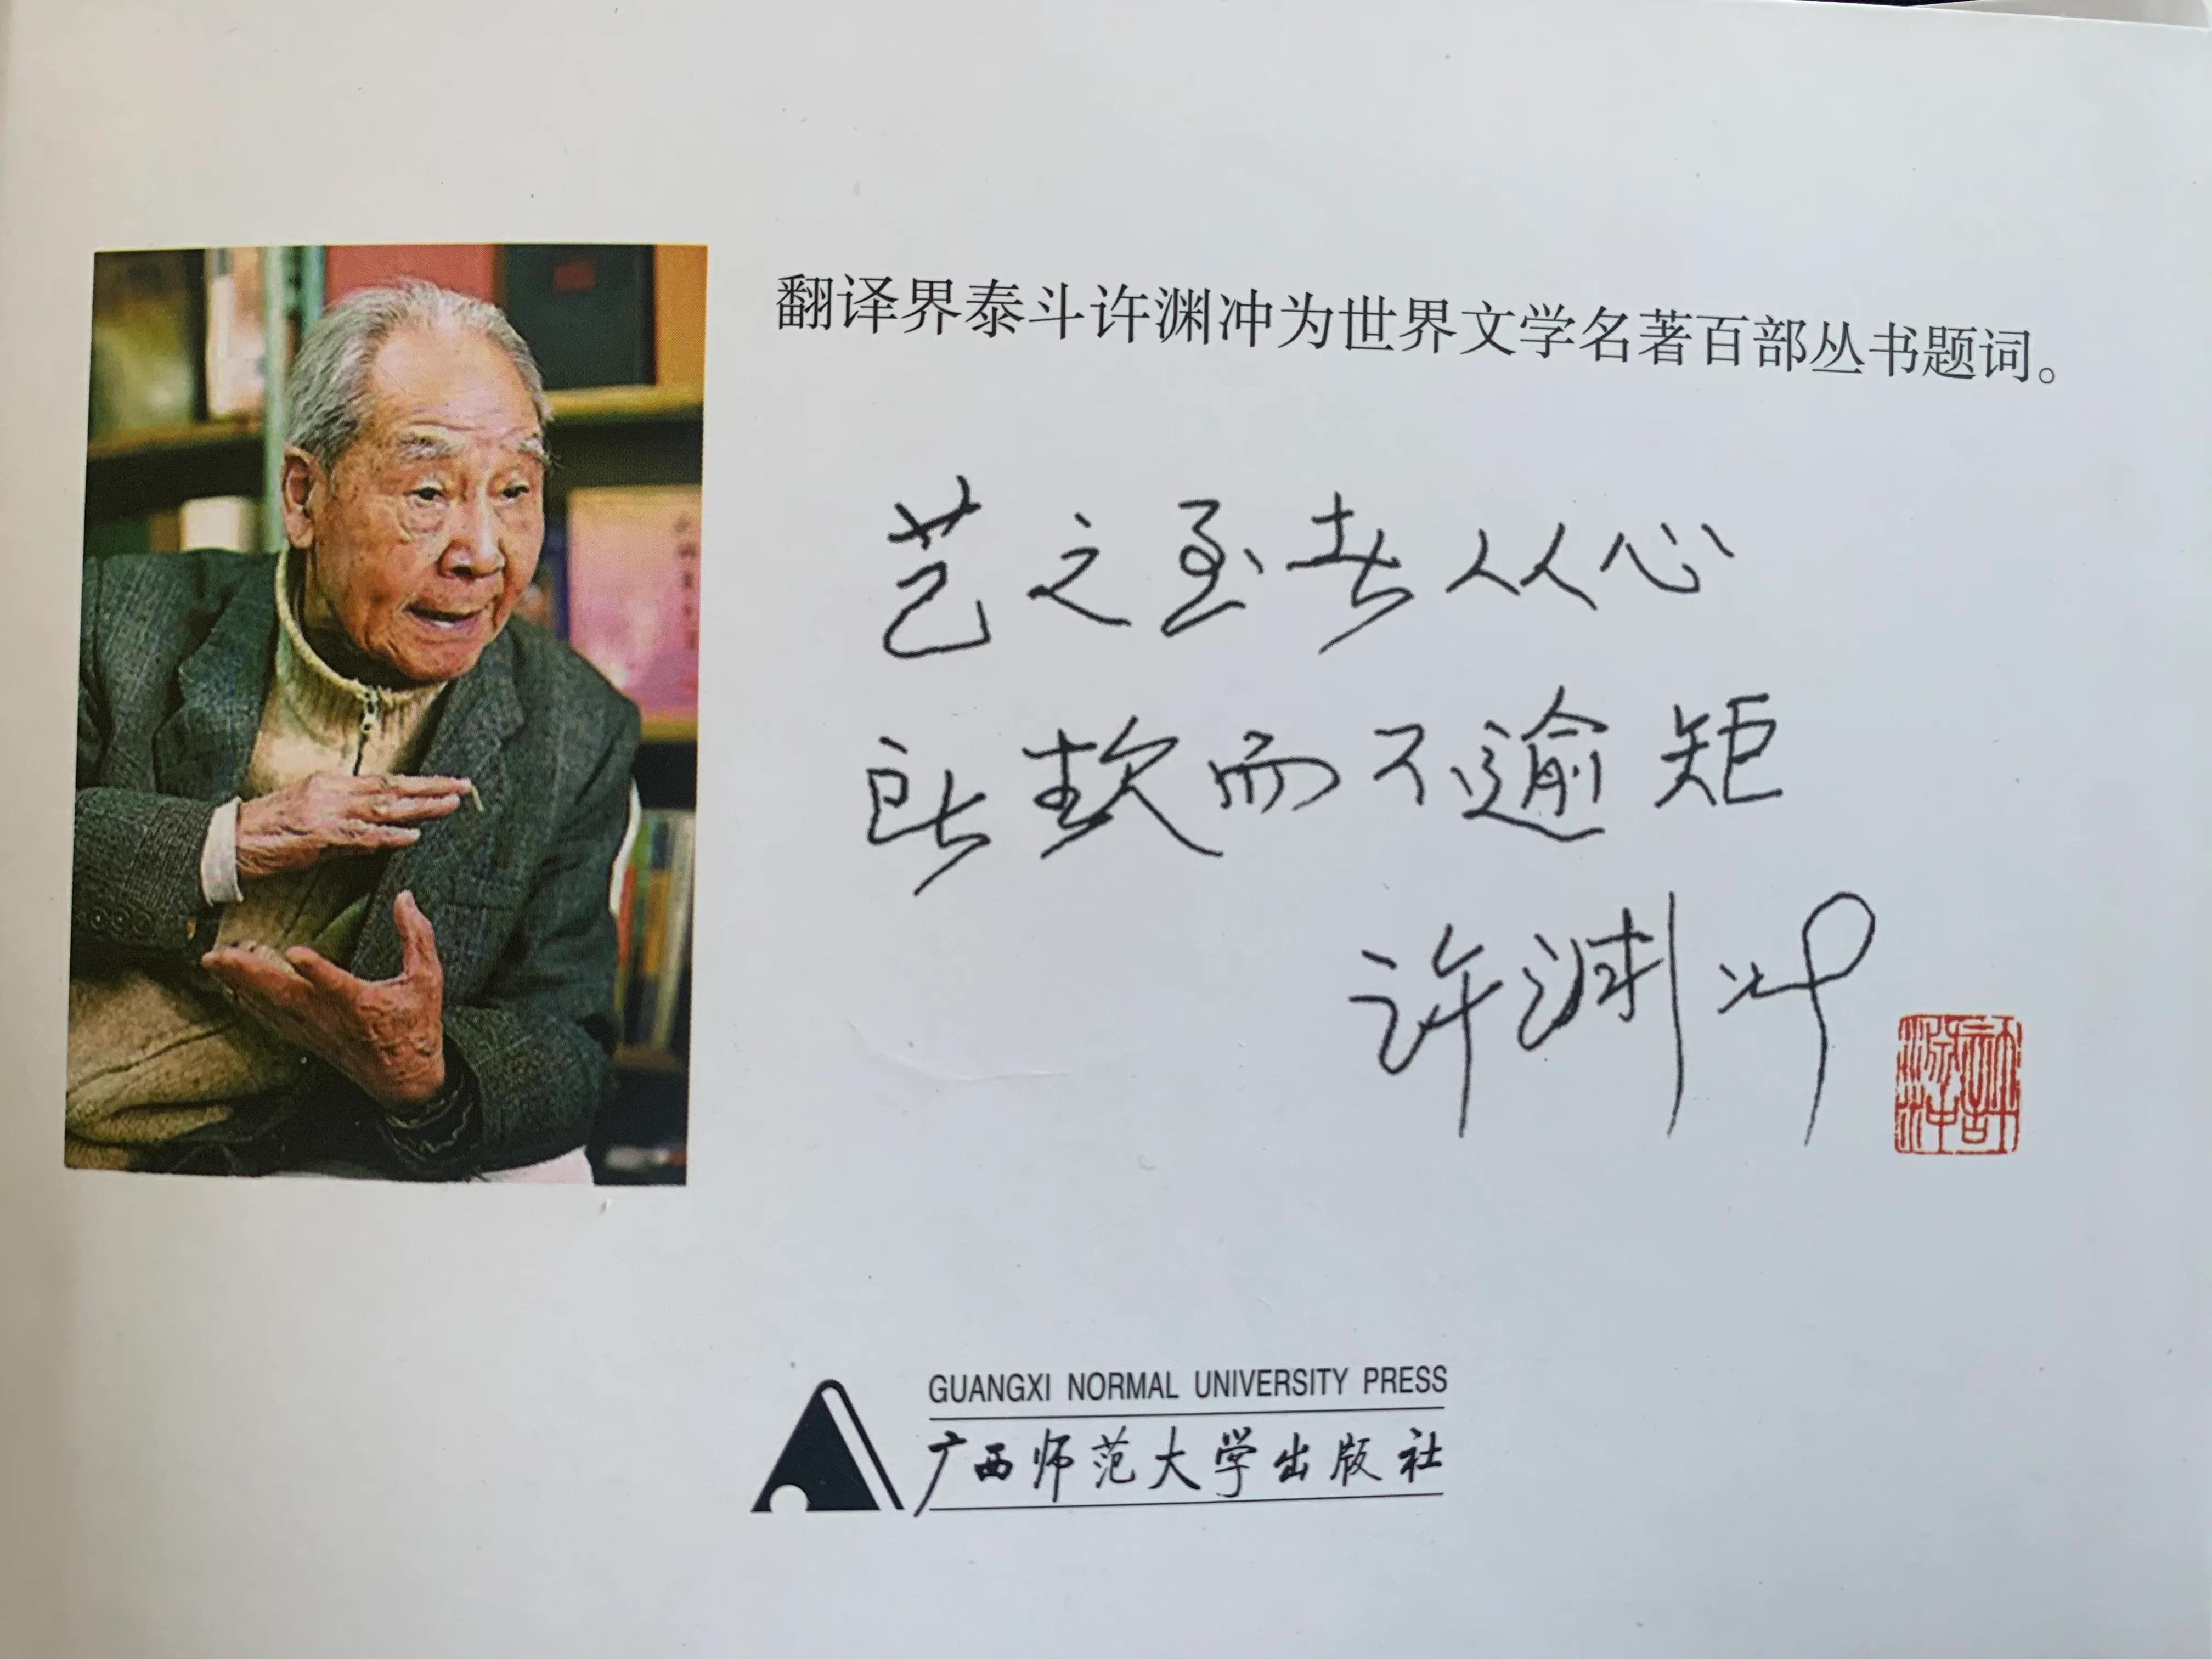 翻译界泰斗许渊冲为世界文学名著百部丛书题词。
艺之至者从心
所欲而不逾矩
许渊冲
許淵冲
GUANGXI NORMAL UNIVERSITY PRESS
广西师范大学出版社